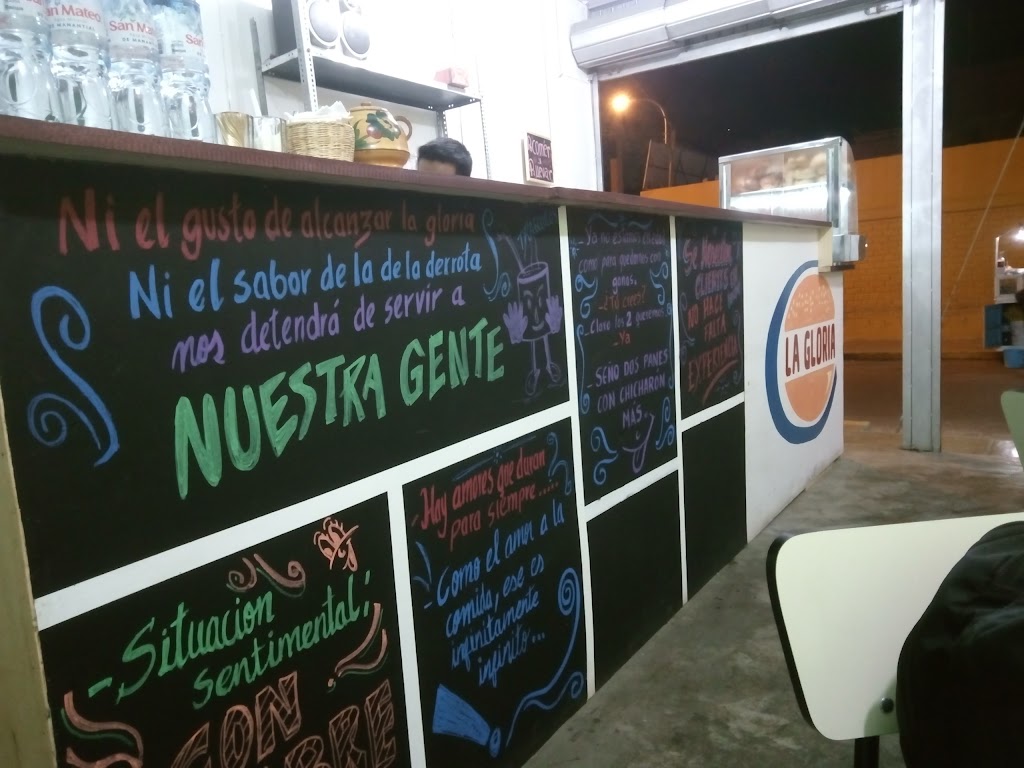 San Mateo
DE MANANTIAL
San Mateo
DE MANANTIAL
San Mateo
COMER
Ni el gusto de alcanzar la gloria
Ni el sabor de la de la derrota
nos detendrá de servir a
NUESTRA GENTE
- Ya no estamos
como para quedarnos con
ganas.
- ¿Tú crees?
- Claro los 2 queremos.
- Ya
- SEÑO DOS PANES
CON CHICHARON
MAS..
Se
CLIENTES
NO HACE
FALTA
EXPERIENCIA
LA GLORIA
- Situacion
sentimental;
CON
- Hay amores que duran
para siempre.....
- Como el amor a la
comida, ese es
infinitamente
infinito...